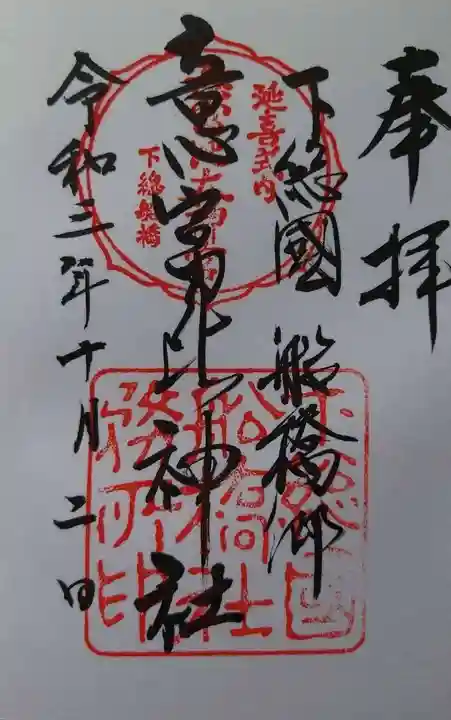 奉拝
下総國 船橋郷
延喜式内
意富比神社
下總船橋
令和三年十月二日